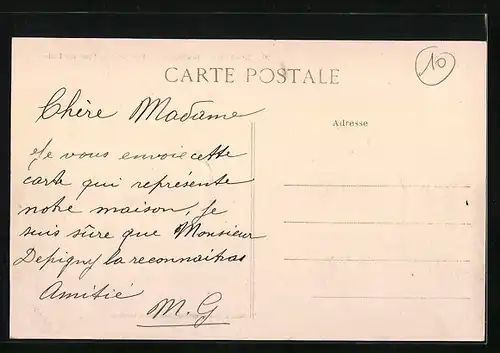 CARTE POSTALE
10
Chère Madame
Adresse
Je vous envoie cette
carte qui représente
notre maison, je
suis sûre que Monsieur
Depigny la reconnaitra
Amitié
M. G